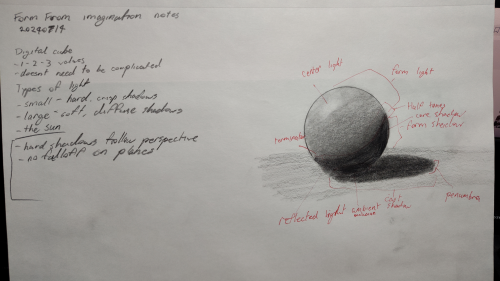 Form From imagination notes
20240714
Digital cube
-1-2-3 values
-doesnt need to be complicated
Types of light
-small-hard, crisp shadows
-large-soft, diffuse shadows
-the sun
-hard shadows follow perspective
-no falloff on planes
center light
form light
Half tones
core shadow
form shadow
terminator
reflected light
ambient occlusion
cast shadow
penumbra